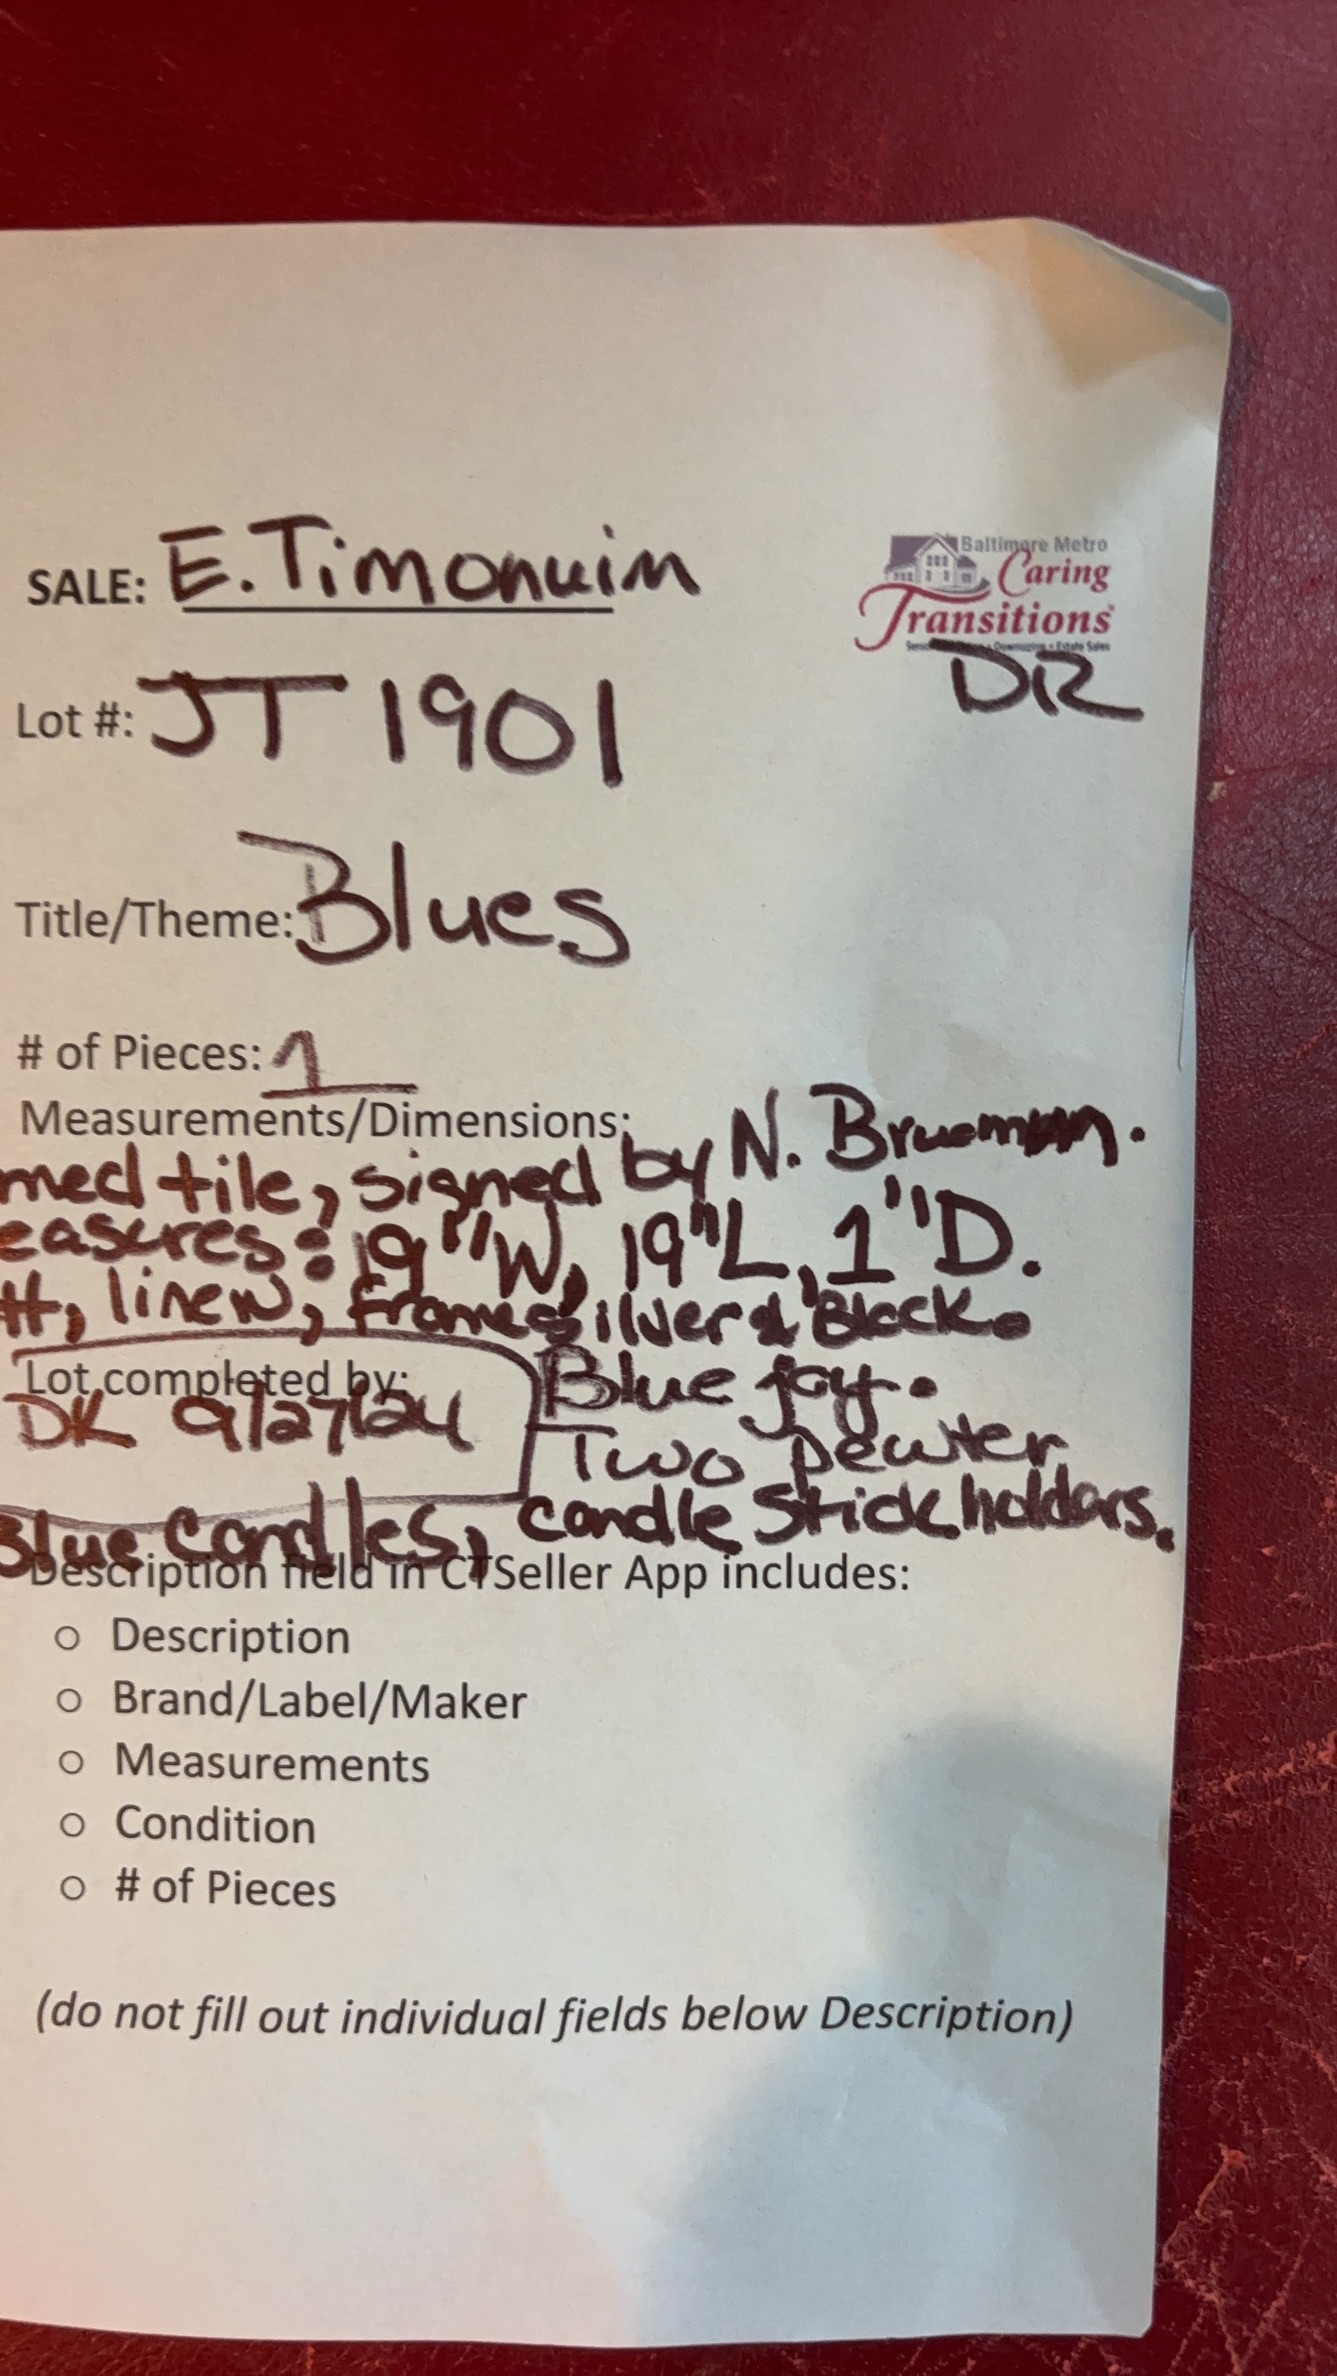 SALE: E. Timonuim
Baltimore Metro
Caring
Transitions
DR
Lot #: JT 1901
Title/Theme: Blues
# of Pieces: 1
Measurements/Dimensions:
med tile, signed by N.
easures: 19"W, 19"L, 1"D.
tt, linen, frame silver & Black.
Lot completed by:
DK 9/27/24
Blue jay.
Two pewter
Blue candles, candle stick holders.
Description field in CTSeller App includes:
○ Description
○ Brand/Label/Maker
○ Measurements
○ Condition
○ # of Pieces
(do not fill out individual fields below Description)